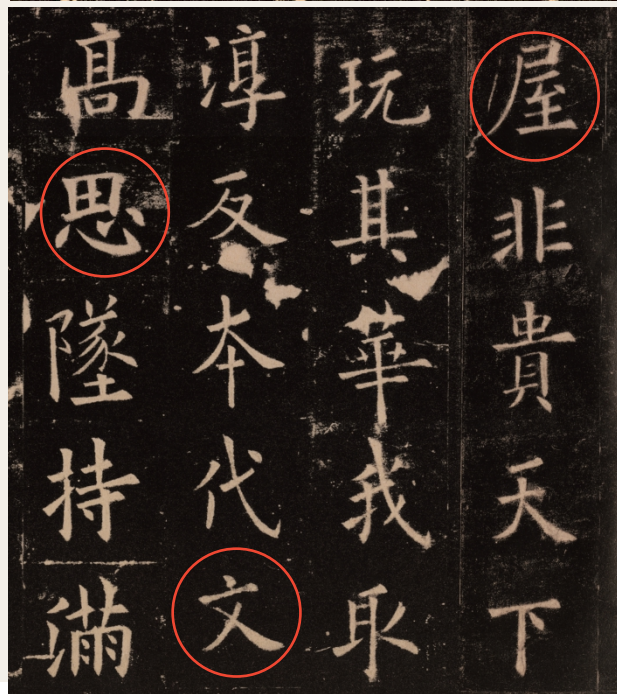 屋非貴天下
玩其華我取
淳反本代文
高思墜持滿